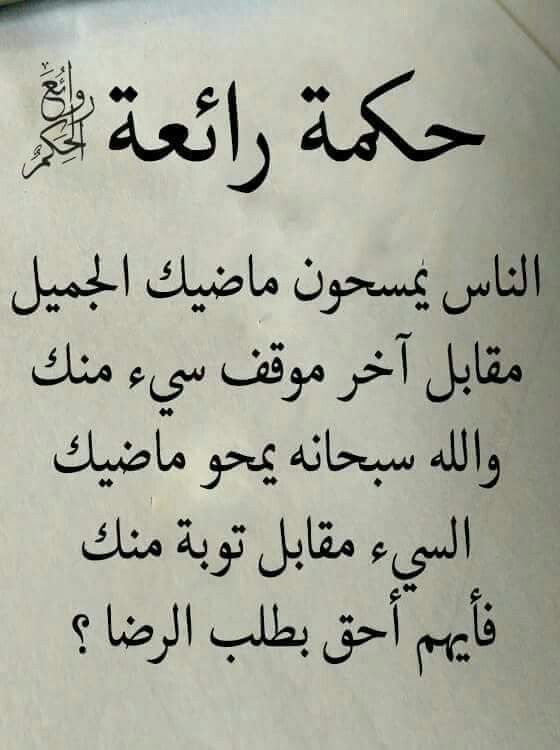 حكمة رائعة
روائع الحكم
الناس يمسحون ماضيك الجميل
مقابل آخر موقف سيء منك
والله سبحانه يمحو ماضيك
السيء مقابل توبة منك
فأيهم أحق بطلب الرضا ؟